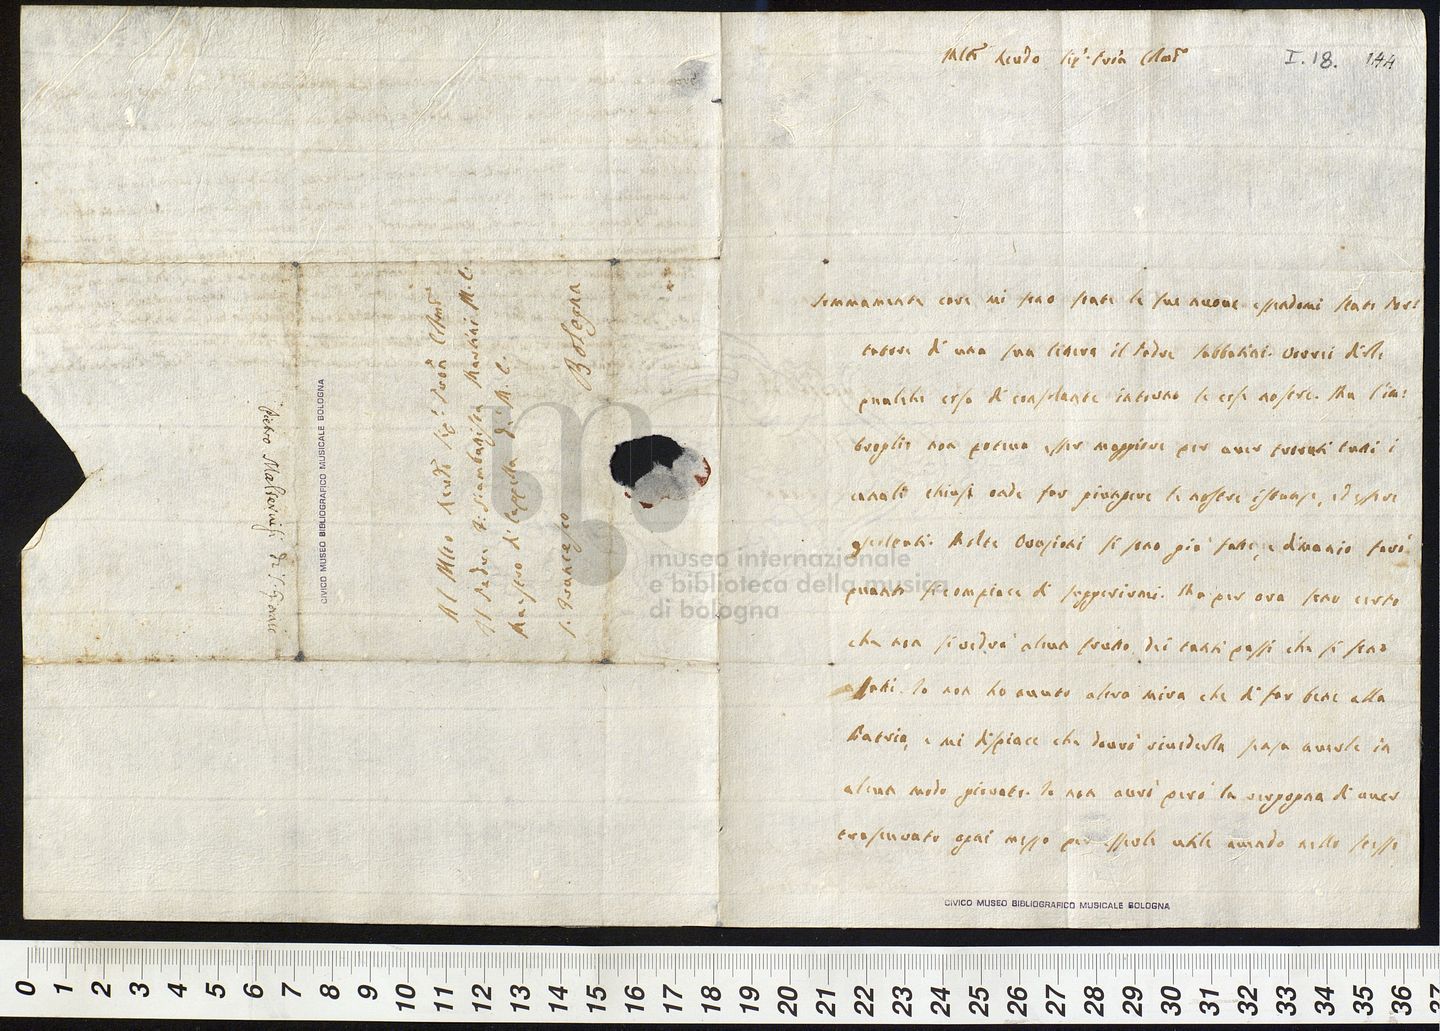 Molto Revdo Sig.r Pron Colmo
I.18. 144
Sommamente care mi sono state le sue nuove essendomi stato Por:
tatore di una sua lettera il Padre Sabbatini. Vorrei dirle
qualche cosa di consolante intorno le cose nostre. Ma l'im:
broglio non poteva esser maggiore per aver trovati tutti i
canali chiusi onde far giungere le nostre istanze, ed essere
ascoltati. Molte Orazioni si sono già fatte, e dinanzi farò
quanto si compiace di suggerirmi. Ma per ora sono certo
che non si vedrà alcun frutto dei tanti passi che si sono
fatti. Io non ho avuto altra mira che di far bene alla
Patria, e mi dispiace che dovrò rivederla senza averle in
alcun modo giovato. Io non avrò però la vergogna di aver
trascurato ogni mezzo per esserle utile avendo nello stesso
Al Mto Revdo Sig.r Pron Colmo
Il Padre F. Giambattista Martini M.C.
Maestro di Cappella di M.C.
S. Francesco Bologna
Pietro
CIVICO MUSEO BIBLIOGRAFICO MUSICALE BOLOGNA
CIVICO MUSEO BIBLIOGRAFICO MUSICALE BOLOGNA
museo internazionale
e biblioteca della musica
di bologna
0 1 2 3 4 5 6 7 8 9 10 11 12 13 14 15 16 17 18 19 20 21 22 23 24 25 26 27 28 29 30 31 32 33 34 35 36 37